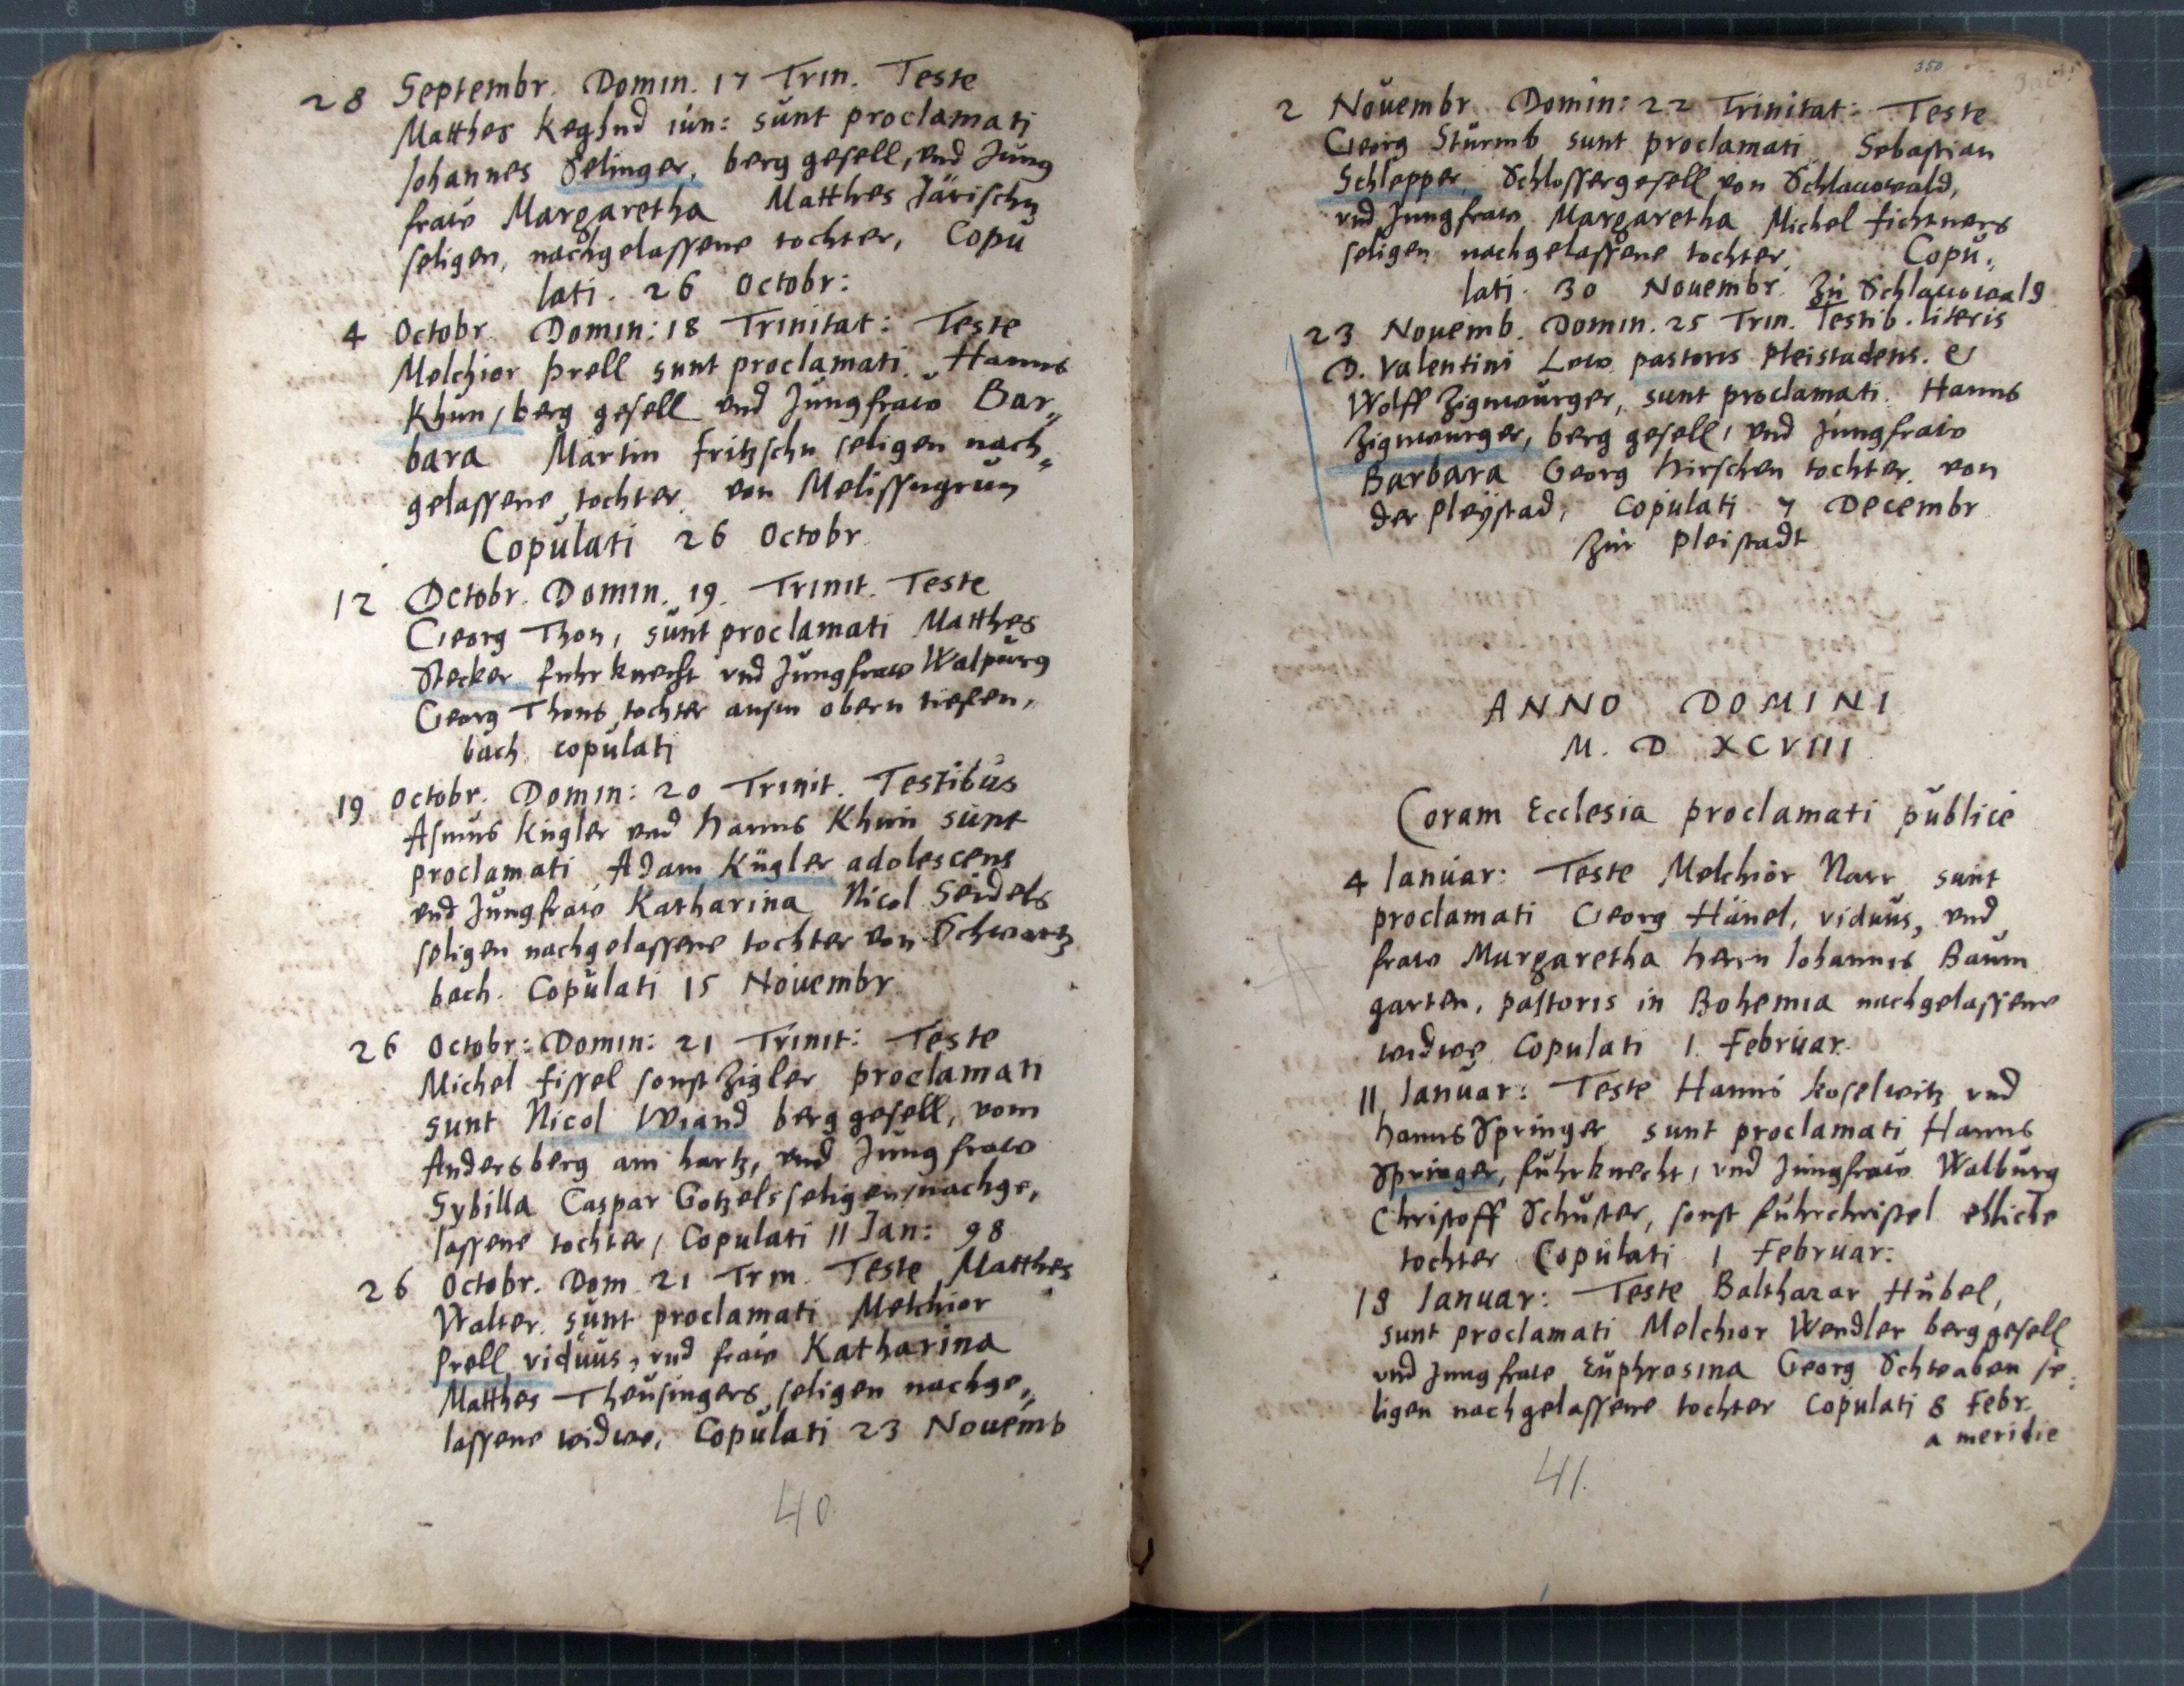 28 Septembr. Domin. 17 Trin. Teste
Matthes Keghnd iun: sunt proclamati
Johannes Selinger, berg gesell, vnd Jung
fraw Margaretha Matthes Järischn
seligen, nachgelassene tochter, Copu
lati. 26 Octobr:
4 Octobr. Domin: 18 Trinitat: Teste
Melchior Prell sunt proclamati. Hanns
Khun, berg gesell vnd Jungfraw Bar„
bara Martin Fritzschn seligen nach„
gelassene tochter, von Melissngrun
Copulati 26 Octobr.
12 Octobr. Domin. 19. Trinit. Teste
Georg Thon, sunt proclamati Matthes
Stecker fuhrknecht vnd Jungfraw Walpurg
Georg Thons tochter ausm obern tiefen,
bach. copulati
19 Octobr. Domin: 20 Trinit. Testibus
Asmus Kugler vnd Hanns Khun sunt
proclamati, Adam Kügler adolescens
vnd Jungfraw Katharina Nicol Seidels
seligen nachgelassene tochter von Schwartz
bach. Copulati 15 Nouembr.
26 Octobr: Domin: 21 Trinit: Teste
Michel fissel sonst Zigler proclamati
sunt Nicol Wiand berg gesell, vom
Andersberg am hartz, vnd Jungfraw
Sybilla Caspar Gotzels seligen, nachge,
lassene tochter, Copulati 11 Jan: 98
26 Octobr. Dom. 21 Trin. Teste Matthes
Walter. sunt proclamati Melchior
Prell viduus, vnd fraw Katharina
Matthes Theusingers seligen nachge„
lassene widwe, Copulati 23 Nouemb
40
350
2 Nouembr. Domin: 22 Trinitat: Teste
Georg Sturmb sunt proclamati Sebastian
Schlepper, Schlossergesell von Schlauowald,
vnd Jungfraw Margaretha Michel fichtners
seligen nachgelassene tochter, Copu„
lati. 30 Nouembr. Zu Schlauowald
23 Nouemb. Domin. 25 Trin. Testib. literis
D. Valentini Low pastoris Pleistadens. &
Wolff Zignwurger, sunt proclamati. Hanns
Zignwurger, berg gesell, vnd Jungfraw
Barbara Georg Hirschen tochter. von
der Pleystad, Copulati 7 Decembr
Zur Pleistadt
ANNO DOMINI
M. D XCVIII
Coram Ecclesia proclamati publice
4 Ianuar: Teste Melchior Narr sunt
proclamati Georg Hänel, viduus, vnd
fraw Margaretha herrn Johannis Baum
garten, pastoris in Bohemia nachgelassene
widwe Copulati 1. Februar.
11 Ianuar: Teste Hanns koselwitz vnd
hanns Springer sunt proclamati Hanns
Springer, fuhrknecht, vnd Jungfraw Walburg
Christoff Schuster, sonst fuhrchristel ehliche
tochter Copulati 1 Februar:
18 Ianuar: Teste Balthazar Hübel,
sunt proclamati Melchior Wendler berggesell
vnd Jungfraw Euphrosina Georg Schwaben se„
ligen nachgelassene tochter Copulati 8 Febr.
a meridie
41.